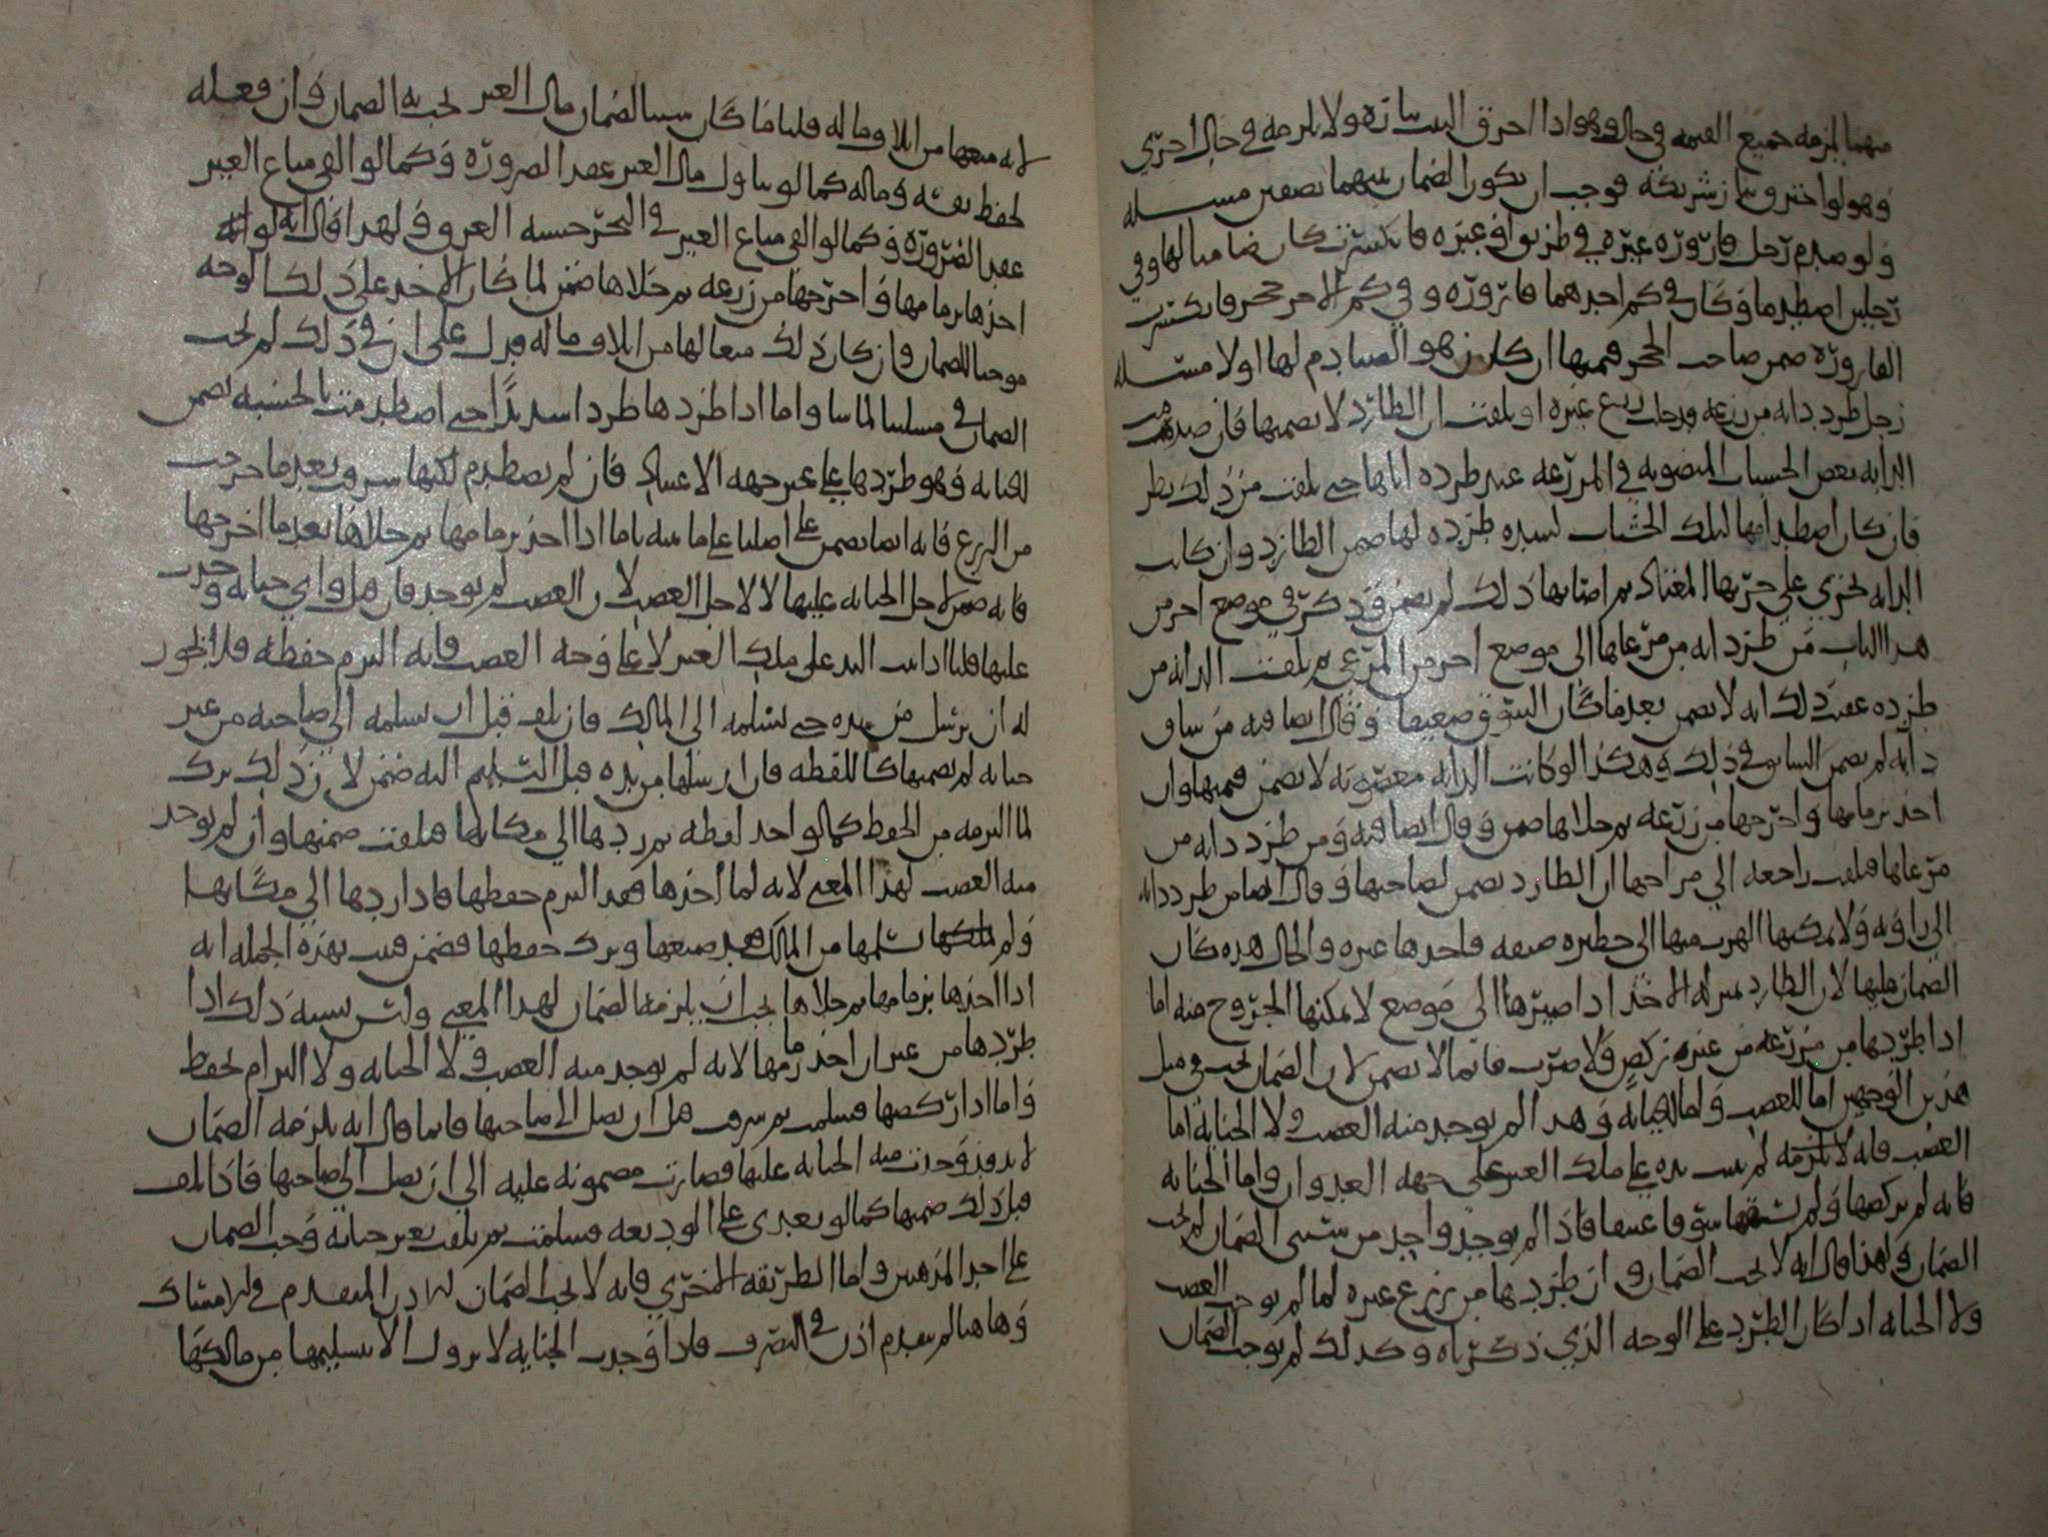 منهما يلزمه جميع القيمه في حال وهو اذا احرق البيت بناره ولا يلزمه في حال اخرى
وهو لو احترق بنار شريكه فوجب ان يكون الضمان بينهما نصفين مسله
ولو صدم رجل قارورة غيره في طريق او غيره فانكسرت كان ضامنا لها وفي
رجلين اصطدما وكان في كم احدهما قارورة وفي كم الاخر حجر فانكسرت
القارورة ضمن صاحب الحجر قيمتها ان كان هو الصادم لها اولا مسله
رجل طرد دابه من زرعه فدخلت زرع غيره او تلفت ان الطارد لا يضمنها فان صدمت
الدابه بعض الخشبات المنصوبه في المزرعه عند طرده اياها حتى تلفت من ذلك نظر
فان كان اصطدامها لتلك الخشبات لشده طرده لها ضمن الطارد وان كانت
الدابه تجري على جريها المعتاد ثم اصابها ذلك لم يضمن وذكر في موضع اخر من
هذا الباب من طرد دابه من مرعاها الى موضع اخر من المرعى ثم تلفت الدابه من
طرده عقيب ذلك انه لا يضمن بعد ما كان السوق ضعيفا وقال ايضا فيه من ساق
دابه لم يضمن السايق في ذلك وهكذا لو كانت الدابه مغصوبه لا يضمن قيمتها وان
اخذ بزمامها واخرجها من زرعه ثم خلاها ضمن وقال ايضا فيه ومن طرد دابه من
مرعاها فتلفت راجعه الى مراحها ان الطارد يضمن لصاحبها وقال ايضا من طرد دابه
الى زاويه ولا يمكنها الهرب منها الى حظيره ضيقه فاخذها غيره والحال هذه كان
الضمان عليها لان الطارد بمنزله الاخذ اذا صيرها الى موضع لا يمكنها الخروج منه اما
اذا طردها من مزرعه من غير ركض ولا ضرب فانما لا يضمن لان الضمان يجب في مثل
هذين الوجهين اما للغصب واما للجنايه وهذا لم يوجد منه الغصب ولا الجنايه اما
الغصب فانه لا يلزمه لم يثبت يده على ملك الغير على جهه العدوان واما الجنايه
فانه لم يركضها ولم يسقها سوقا عنيفا فاذا لم يوجد واحد من سببي الضمان لم يجب
الضمان ولهذا قال انه لا يجب الضمان وان طردها من زرع غيره لما لم يوجد الغصب
ولا الجنايه اذا كان الطرد على الوجه الذي ذكرناه وكذلك لم يوجب الضمان
لانه منعها من اتلاف ماله قلنا ما كان سببا لضمان مال الغير يجب به الضمان وان فعله
لحفظ نفسه وماله كما لو تناول مال الغير عند الضروره وكما لو القى متاع الغير
عند الضروره وكما لو القى متاع الغير في البحر خشيه الغرق ولهذا قال انه لو انه
اخذها بزمامها واخرجها من زرعه ثم خلاها ضمن لما كان الاخذ على ذلك الوجه
موجبا للضمان وان كان ذلك منعا لها من اتلاف ماله فدل على ان في ذلك لم يجب
الضمان في مسلتنا لما بينا واما اذا طردها طردا شديدا حتى اصطدمت بالخشبه يضمن
للجنايه وهو طردها على غير جهه الاعتياد فان لم يصطدم لكنها سرقت بعد ما خرجت
من الزرع فانه ايضا يضمن على اصلنا على ما بينه فاما اذا اخذ بزمامها ثم خلاها بعد ما اخرجها
فانه ضمن لاجل الجنايه عليها لا لاجل الغصب لان الغصب لم يوجد فان قيل واي جنايه وجدت
عليها قلنا اذا اثبت اليد على ملك الغير لا على وجه الغصب فانه التزم حفظه فلا يجوز
له ان يرسل من يده حتى يسلمه الى المالك فان تلف قبل ان يسلمه الى صاحبه من غير
جنايه لم يضمنها كاللقطه فان ارسلها من يده قبل التسليم اليه ضمن لان ذلك ترك
لما التزمه من الحفظ كما لو اخذ لقطه ثم ردها الى مكانها فتلفت ضمنها وان لم يوجد
منه الغصب لهذا المعنى لانه لما اخذها فقد التزم حفظها فاذا ردها الى مكانها
ولم يسلمها من المالك فقد ضيعها وترك حفظها فضمن فثبت بهذه الجمله انه
اذا اخذها بزمامها ثم خلاها يجب ان يلزمه الضمان لهذا المعنى وليس يشبه ذلك اذا
طردها من غير ان اخذ زمامها لانه لم يوجد منه الغصب ولا الجنايه ولا التزام لحفظ
واما اذا ركضها فسلمت ثم سرقت قبل ان تصل الى صاحبها فانما قال انه يلزمه الضمان
لانه قد وجدت منه الجنايه عليها فصارت مضمونه عليه الى ان تصل الى صاحبها فاذا تلفت
قبل ذلك ضمنها كما لو تعدى على الوديعه فسلمت ثم تلفت بغير جنايه وجب الضمان
على احد المذهبين واما الطريقه الاخرى فانه لا يجب الضمان للاذن المتقدم في الامساك
وهاهنا لم يتقدم اذن في التصرف فاذا وجدت الجنايه لا يزول الا بتسليمها من مالكها